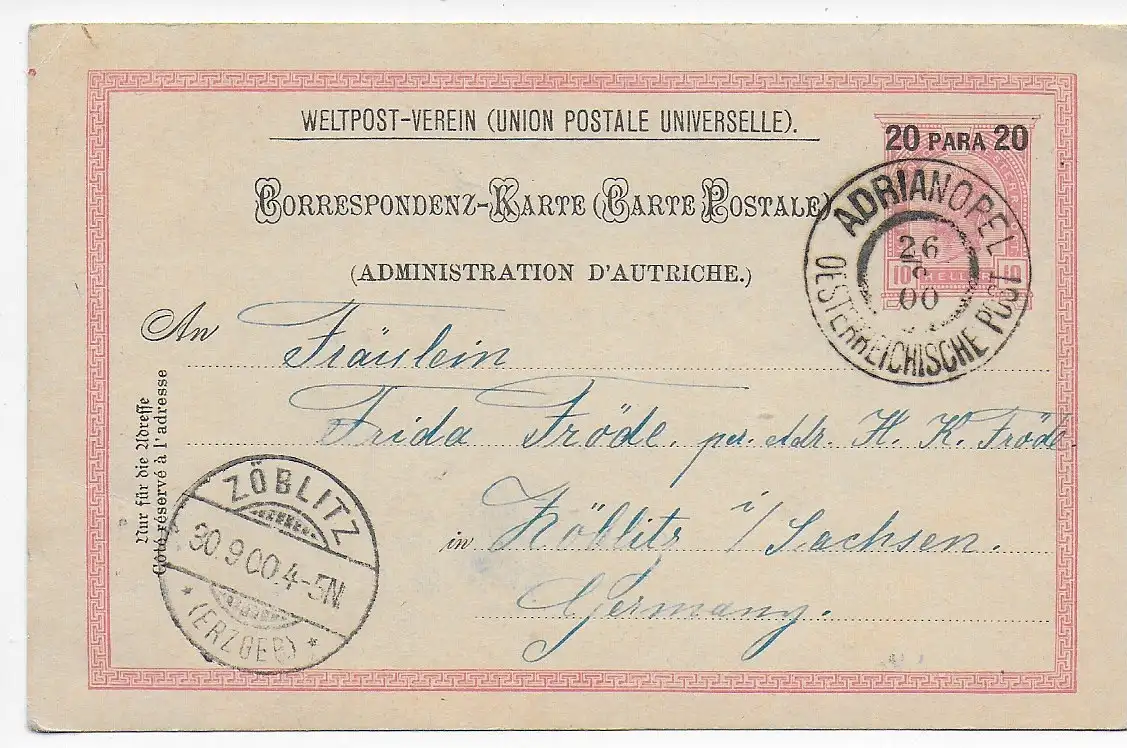 WELTPOST-VEREIN (UNION POSTALE UNIVERSELLE).
20 PARA 20
CORRESPONDENZ-KARTE (CARTE POSTALE)
(ADMINISTRATION D'AUTRICHE.)
10 HELLER 10
ADRIANOPEL
26
00
OESTERREICHISCHE POST
An Fräulein
Frida Fröde. per. Adr. H. K. Fröde.
in Zöblitz i/Sachsen.
Germany.
Nur für die Adresse
Coté réservé à l'adresse
ZÖBLITZ
30.9.00.4-5N.
* (ERZGEB) *